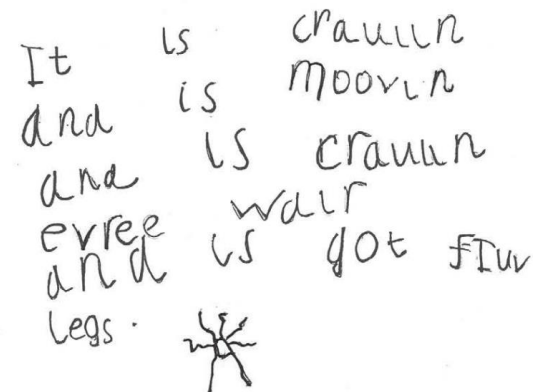 It is craulin
and is moovin
and is craulin
evree wair
and is got fiuv
legs.